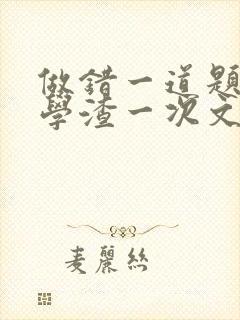 做錯一道題
學渣一次文
麦麗絲